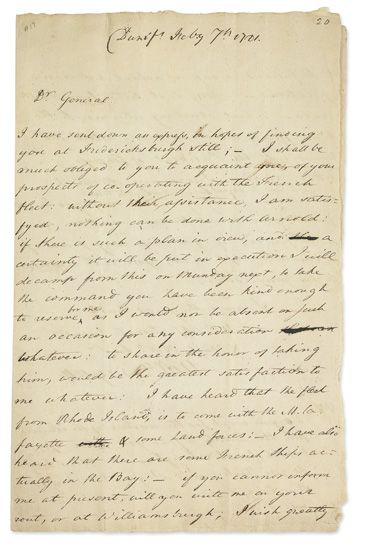 20
(Dumfs Feby 7th 1781.
Dr General
I have sent down an express, in hopes of finding
you at Fredericksburgh still; – I shall be
much obliged to you to acquaint me, of your
prospects of co-operating with the French
fleet: without their assistance, I am satis-
fyed, nothing can be done with Arnold:
if there is such a plan in view, and a
certainty it will be put in execution I will
decamp from this on Munday next, to take
the command you have been kind enough
to reserve for me, as I would not be absent on such
an occasion for any consideration
whatever: to share in the honor of taking
him, would be the greatest satisfaction to
me whatever: I have heard that the fleet
from Rhode Island, is to come with the M. la
fayette & some land forces: – I have also
heard that there are some French Ships ac-
tually in the Bay: – if you cannot inform
me at present, will you write me in your
rout, or at Williamsburgh; I wish greatly